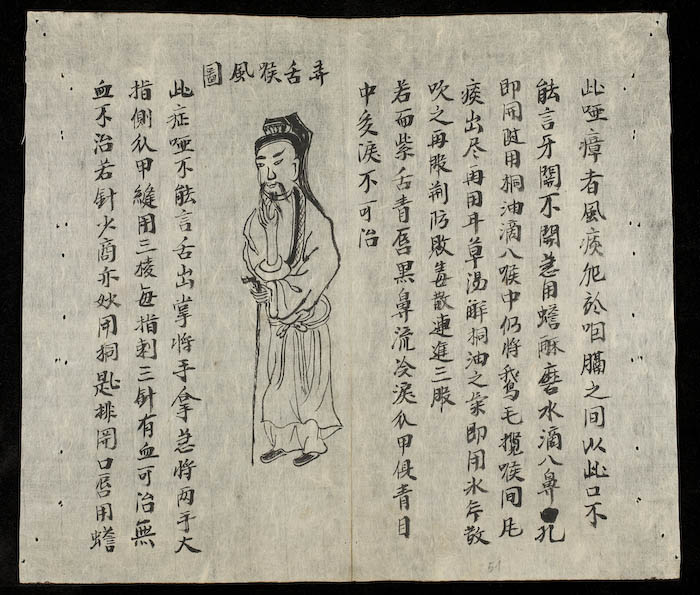 此哑瘴者風痰犯於咽膈之間以此口不
能言牙關不開急用蟾酥磨水滴入鼻孔
即開用桐油滴入喉中仍将鵝毛攪喉間
痰出尽再用甘草湯解桐油之氣即用氷片散
吹之再服荆防敗毒散連進三服
若面紫舌青唇黑鼻流冷淚爪甲俱青目
中多淚不可治
弄舌喉風圖
此症哑不能言舌出掌将手拿急将两手大
指側爪甲縫用三稜每指刺三針有血可治無
血不治若針少商亦妙用銅匙排開口唇用蟾
51